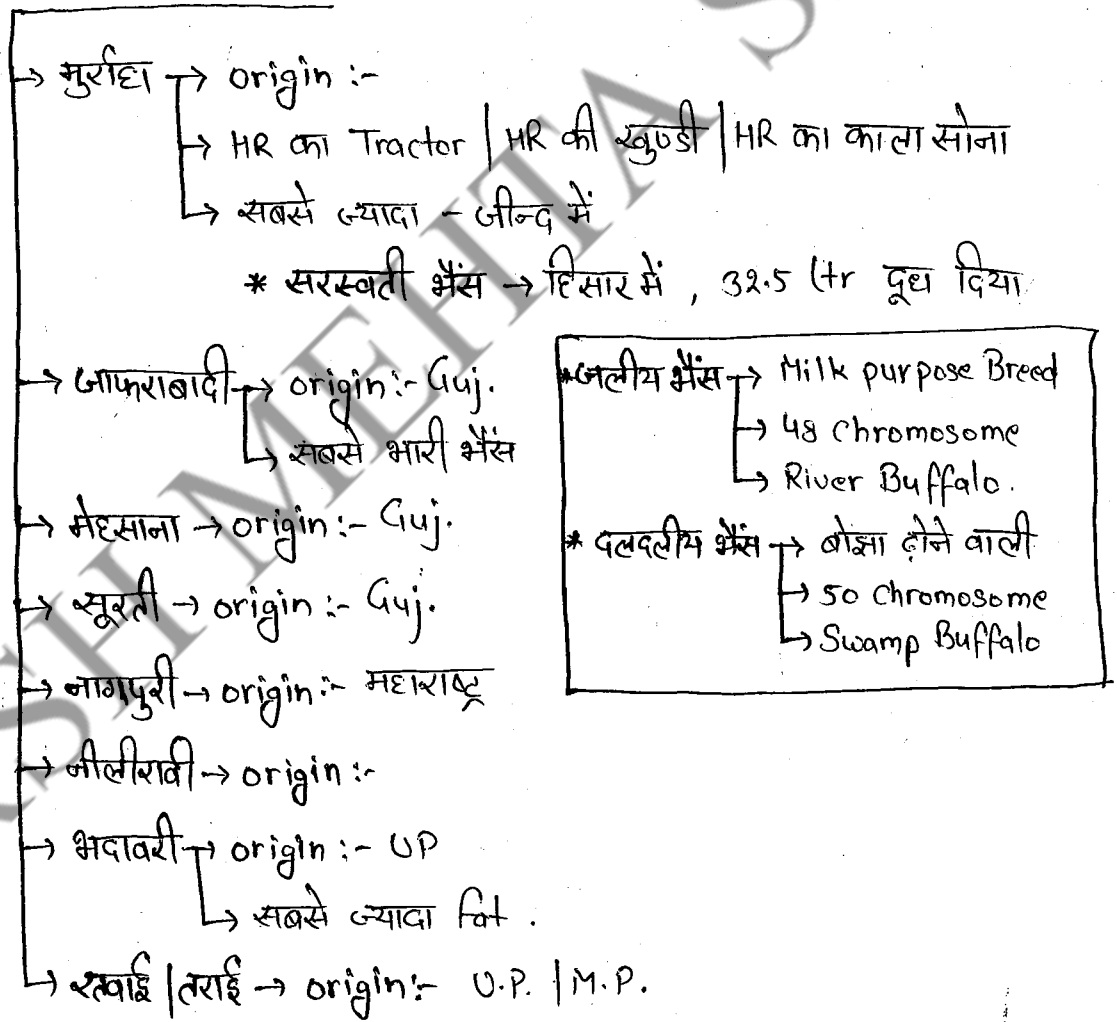 → मुर्राहा → origin :-
→ HR का Tractor | HR की खुण्डी | HR का काला सोना
→ सबसे ज्यादा - जीन्द में
* सरस्वती भैंस → हिसार में , 32.5 ltr दूध दिया
→ जाफराबादी → origin :- Guj.
→ सबसे भारी भैंस
→ मेहसाना → origin :- Guj.
→ सूरती → origin :- Guj.
→ नागपुरी → origin :- महाराष्ट्र
→ नीलीरावी → origin :-
→ भदावरी → origin :- UP
→ सबसे ज्यादा fat .
→ / तराई → origin :- U.P. | M.P.
* जलीय भैंस → Milk purpose Breed
→ 48 Chromosome
→ River Buffalo .
* दलदलीय भैंस → बोझा ढ़ोने वाली
→ 50 Chromosome
→ Swamp Buffalo
SH MEHTA S